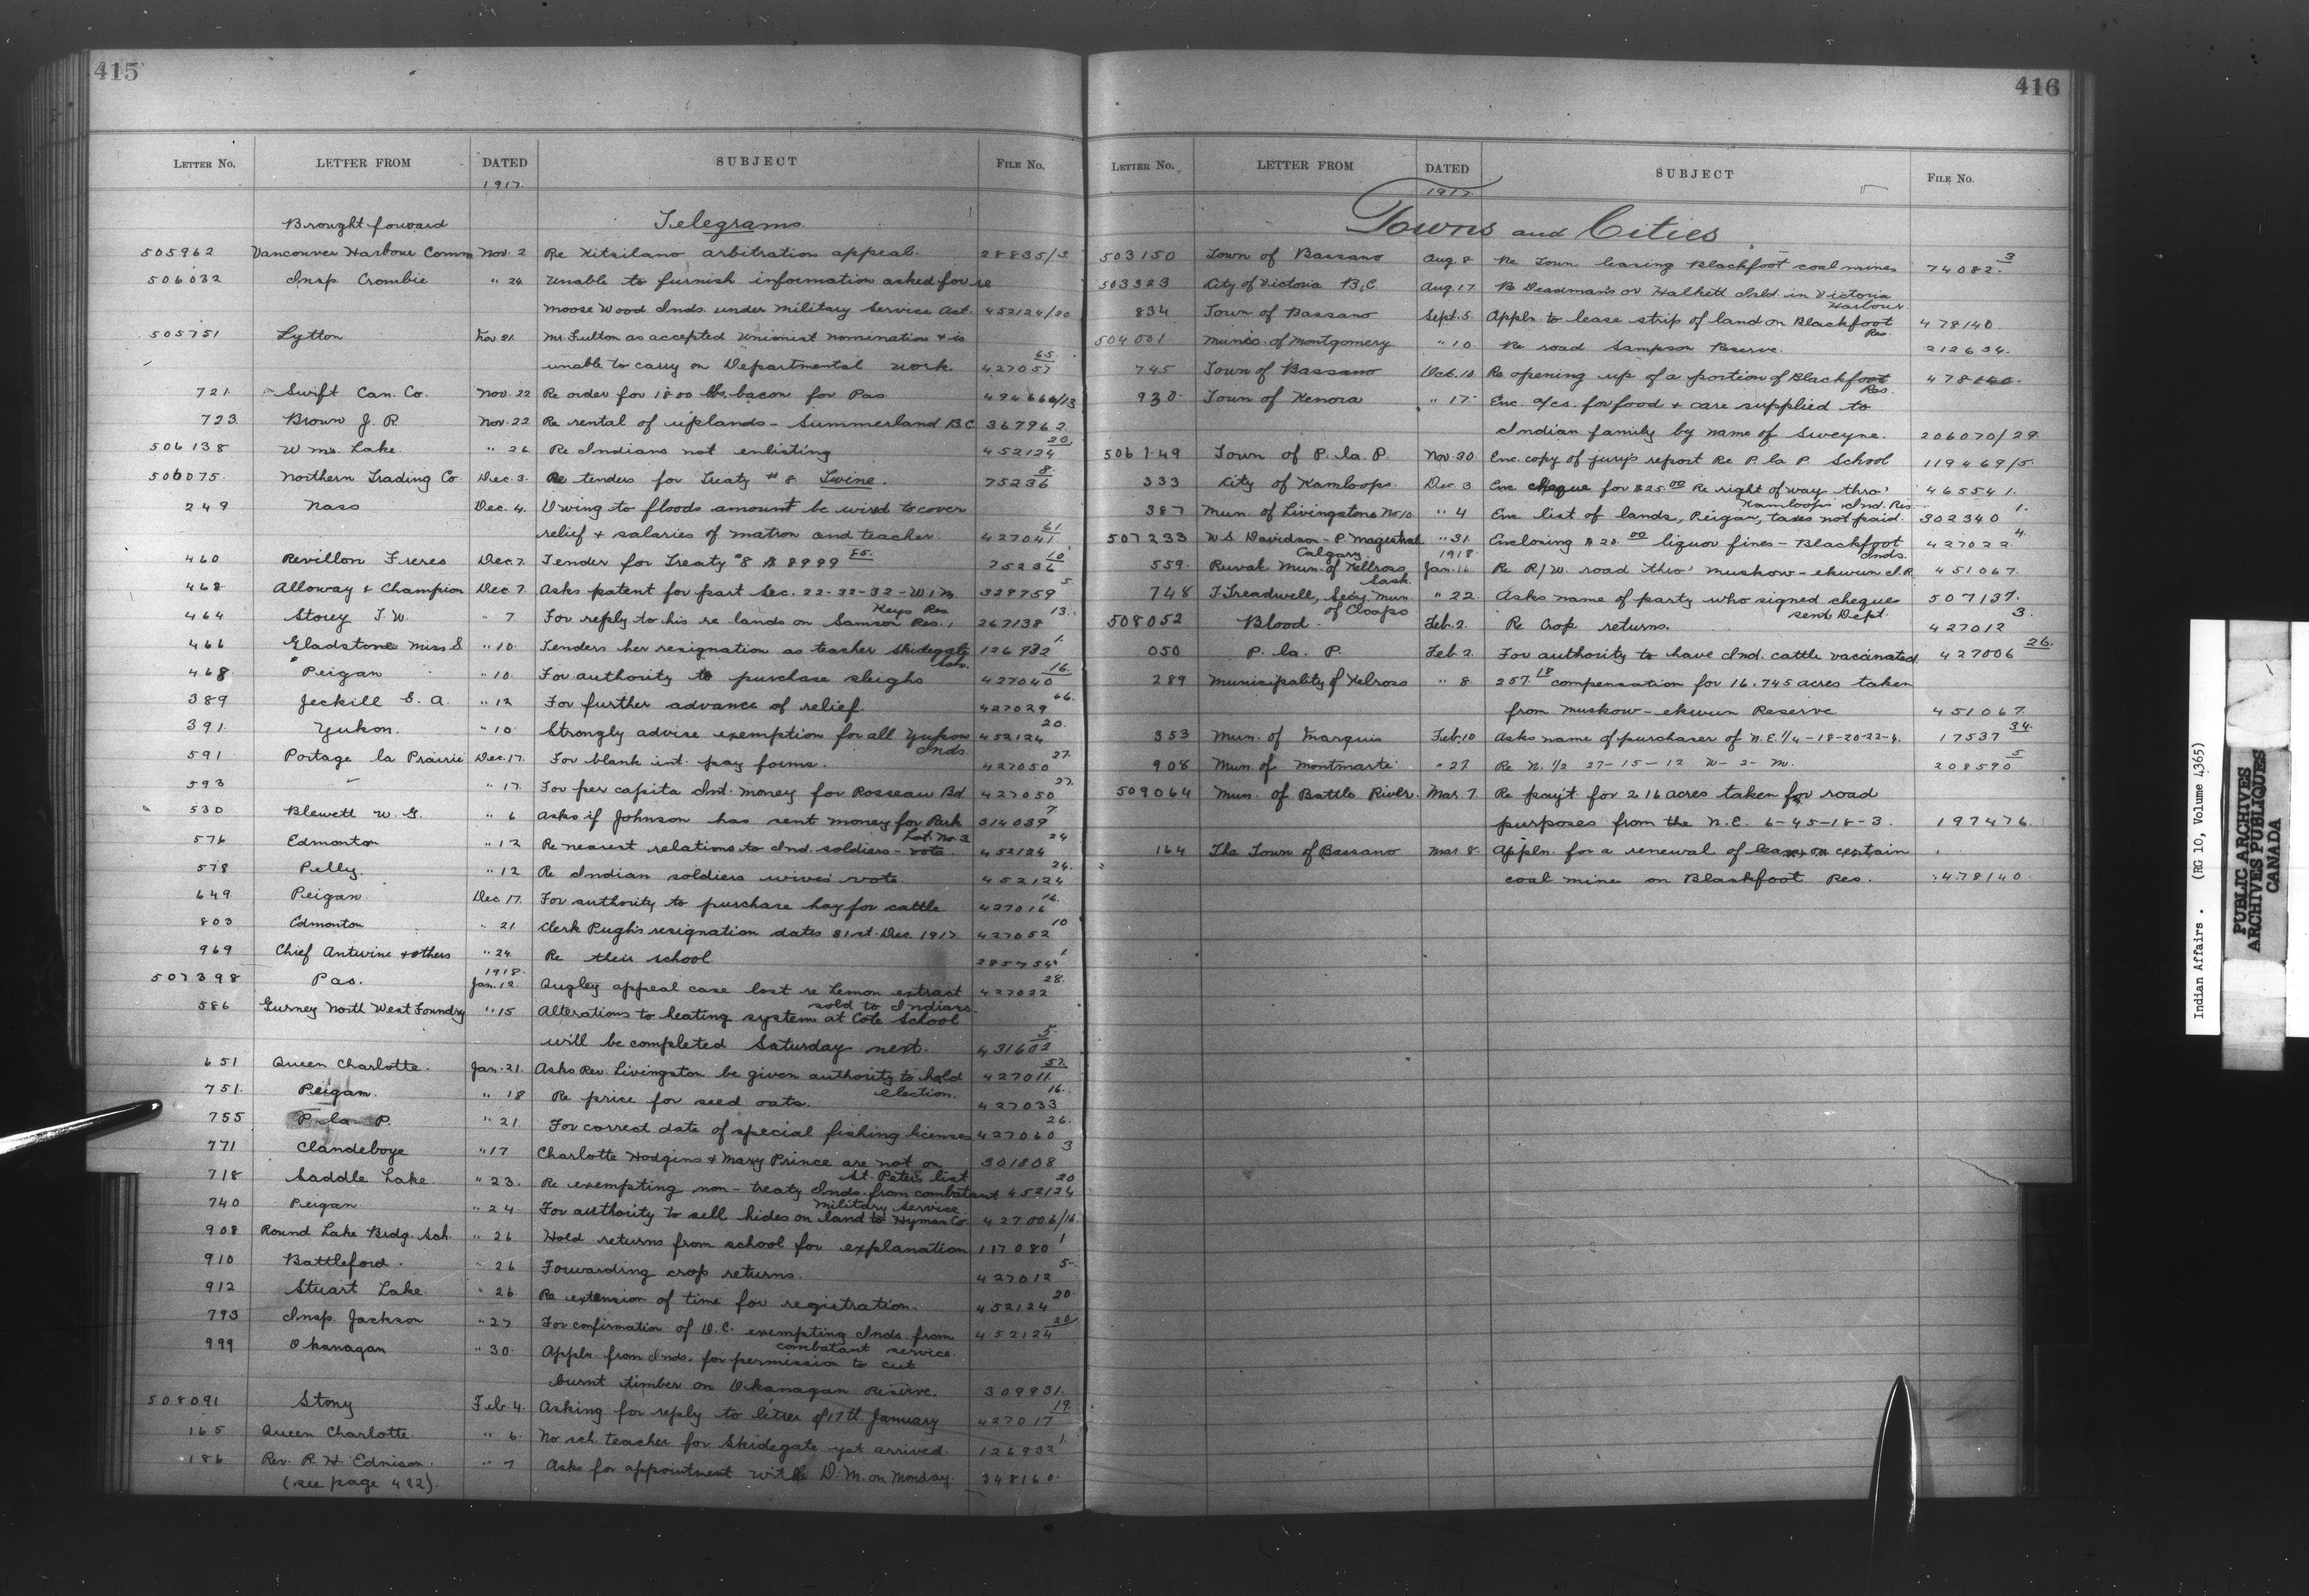 415
LETTER No. LETTER FROM DATED SUBJECT FILE No.
1917.
Brought forward Telegrams.
505962 Vancouver Harbour Comm Nov. 2 Re Kitsilano arbitration appeal. 28835/3
506032 Insp. Crombie " 24 Unable to furnish information asked for re
Moose Wood Inds. under Military Service Act. 452124/20
505751 Lytton Nov 21 Mr Fulton as accepted Unionist nomination & is
unable to carry on Departmental work. 427057 65.
721. Swift Can. Co. Nov. 22 Re order for 1800 lbs. bacon for Pas 494666/13
723. Brown J. R. Nov. 22 Re rental of uplands - Summerland B.C. 367962.
506138 Wms. Lake " 26 Re Indians not enlisting 452124 20
506075. Northern Trading Co Dec. 3. Re tenders for Treaty # 8 Twine. 75236 8.
249 Nass Dec. 4. Owing to floods amount be wired to cover
relief & salaries of matron and teacher. 427041 61
460 Revillon Freres Dec 7. Tender for Treaty #8 $8999 85. 75236 10
462 Alloway & Champion Dec 7. Asks patent for part Sec. 22-32-32-W1M 329759 5
Keys Res
464 Storey T. W. " 7 For reply to his re lands on Samson Res., 267138 13.
466 Gladstone Miss S " 10. Tenders her resignation as teacher Skidegate 126932 1.
Sch.
468. Peigan " 10. For authority to purchase sleighs 427040 16.
389 Jeckill E. A. " 12 For further advance of relief. 427029 66.
391. Yukon. " 10 Strongly advise exemption for all Yukon 452124 20.
Inds.
591 Portage la Prairie Dec. 17. For blank int. pay forms. 427050 27.
593 " " 17. For per capita Int. money for Rosseau Bd. 427050 27.
530 Blewett W. G. " 6 Asks if Johnson has sent money for Park 314039 7
Lot. No. 3
576 Edmonton " 12 Re nearest relations to Ind. soldiers - vote. 452124 24
578 Pelly. " 12 Re Indian soldiers wives' vote. 452124 24.
649. Peigan Dec 17. For authority to purchase hay for cattle. 427016 16.
803 Edmonton " 21. Clerk Pugh's resignation dates 31st. Dec. 1917. 427052 10
969 Chief Antwine & others " 24. Re their school 285754 1
1918.
507398 Pas. Jan. 12. Quigley appeal case lost re Lemon extract 427022 28.
sold to Indians.
586 Gurney North West Foundry " 15 Alterations to heating system at Cote School
will be completed Saturday next. 431602 5.
651 Queen Charlotte. Jan. 21. Asks Rev. Livingston be given authority to hold 427011 57.
election.
751. Peigan. " 18 Re price for seed oats. 427033 16.
755 P. la P. " 21. For correct date of special fishing licenses 427060 26.
771 Clandeboye " 17 Charlotte Hodgins & Mary Prince are not on 301808 3
St. Peter's list
718 Saddle Lake. " 23. Re exempting non-treaty Inds. from combatant 452124 20
Military Service.
740 Peigan " 24 For authority to sell hides on land to Hyman Co. 427006/16.
908 Round Lake Brdg. Sch. " 26 Hold returns from school for explanation 117080 1
910 Battleford. " 26 Forwarding crop returns. 427012 5
912 Stuart Lake. " 26. Re extension of time for registration. 452124 20.
793 Insp. Jackson " 27 For confirmation of O.C. exempting Inds. from 452124 20
combatant service.
999 Okanagan " 30. Appln. from Inds. for permission to cut
burnt timber on Okanagan Reserve. 309931.
508091 Stony Feb. 4. Asking for reply to letter of 17th January 427017 19.
165 Queen Charlotte. " 6. No sch. teacher for Skidegate yet arrived. 126932 1.
186 Rev. R. H. " 7 Asks for appointment with D. M. on Monday. 348160.
(see page 422).
416
LETTER No. LETTER FROM DATED SUBJECT FILE No.
1917.
Towns and Cities
503150 Town of Bassano Aug. 8 Re Town leasing Blackfoot coal mines 74082. 3
503323 City of Victoria B.C. Aug. 17. Re Deadman's or Halkett Isld. in Victoria
Harbour.
834 Town of Bassano Sept. 5. Appln. to lease strip of land on Blackfoot 478140.
Res.
504001. Munic. of Montgomery " 10 Re road Sampson Reserve. 212634.
745 Town of Bassano Oct. 10. Re opening up of a portion of Blackfoot 478140.
Res.
930. Town of Kenora " 17. Enc. a/cs. for food & care supplied to
Indian family by name of Sweyne. 206070/29.
506149 Town of P. la. P. Nov. 30. Enc. copy of jury's report Re P. la P. School 119469/5.
333 City of Kamloops. Dec 3 Enc cheque for $25 00 Re right of way thro' 465541.
Kamloops Ind. Res.
387 Mun. of Livingstone No 10. " 4 Enc. list of lands, Peigan, taxes not paid. 302340 1.
507233 W. S. Davidson - P. Magistrate " 31. Enclosing $20. 00 liquor fines - Blackfoot 427022 4.
Calgary. 1918. Inds.
559. Rural Mun. of Kellross Jan. 16. Re R/W. road thro' Muskow-ekwun I.R. 451067.
Sask
748 J. Treadwell, Secy. Mun. " 22. Asks name of party who signed cheque 507137.
of sent Dept.
508052 Blood. Feb. 2. Re Crop returns. 427012 3.
050 P. la. P. Feb 2. For authority to have Ind. cattle vacinated. 427006 26.
289 Municipality of Kelross " 8. 257. 18 compensation for 16.745 acres taken
from Muskow-ekwun Reserve 451067.
353 Mun. of Marquis Feb. 10 Asks name of purchaser of N.E. 1/4-18-20-22-4. 17537 34.
908 Mun. of Montmartre " 27 Re N. 1/2 27-15-12 W-2-M. 208590 5
509064 Mun. of Battle River. Mar. 7. Re pay't. for 2.16 acres taken for road
purposes from the N.E. 6-45-18-3. 197476.
164 The Town of Bassano Mar 8. Appln. for a renewal of lease on certain
coal mine on Blackfoot Res. 478140.
Indian Affairs. (RG 10, Volume 4365)
PUBLIC ARCHIVES
ARCHIVES PUBLIQUES
CANADA